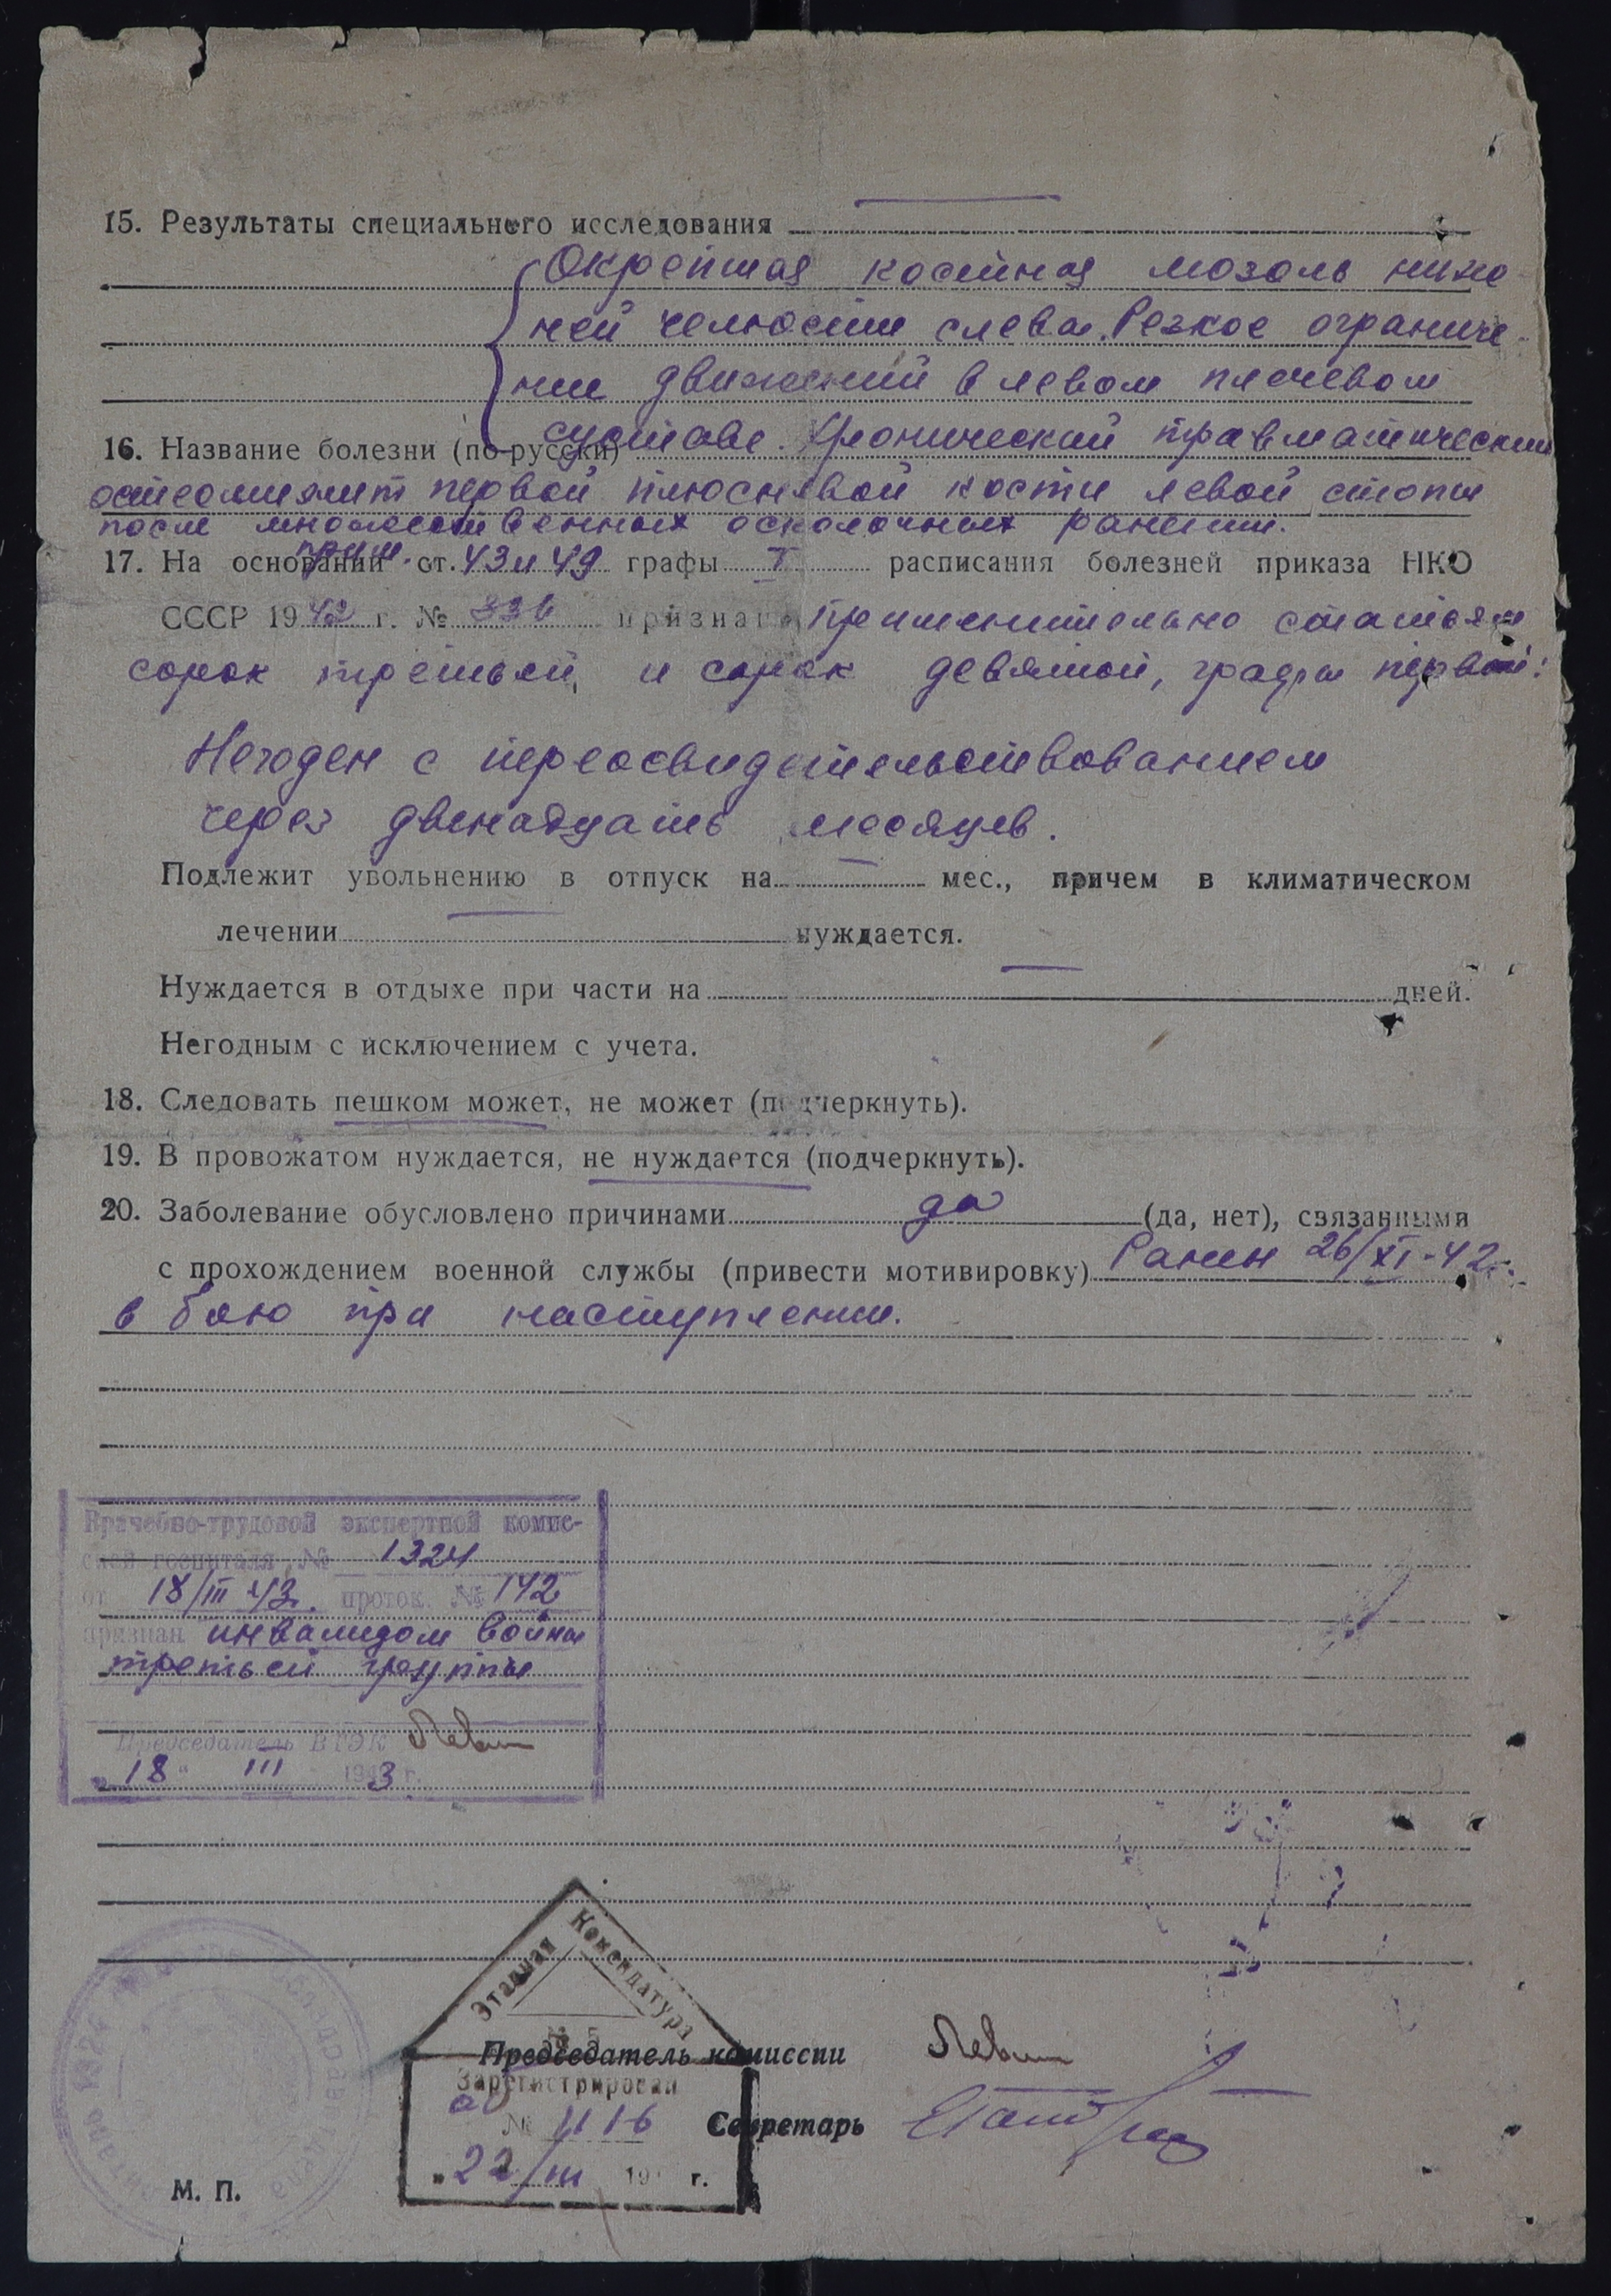 15. Результаты специального исследования
Окрепшая костная мозоль ниж-
ней челюсти слева. Резкое ограниче-
ние движений в левом плечевом
суставе. Хронический травматический
16. Название болезни (по-русски)
остеомиелит первой плюсневой кости левой стопы
после множественных осколочных ранений.
17. На основании прим. ст. 43 и 49 графы I расписания болезней приказа НКО
СССР 1942 г. № 336 признан применительно статьям
сорок третьей и сорок девятой, графы первой:
Негоден с переосвидетельствованием
через двенадцать месяцев.
Подлежит увольнению в отпуск на — мес., причем в климатическом
лечении — нуждается.
Нуждается в отдыхе при части на — дней.
Негодным с исключением с учета.
18. Следовать пешком может, не может (подчеркнуть).
19. В провожатом нуждается, не нуждается (подчеркнуть).
20. Заболевание обусловлено причинами да (да, нет), связанными
с прохождением военной службы (привести мотивировку) Ранен 26/XI-42г.
в бою при наступлении.
Врачебно-трудовой экспертной комис-
сией госпиталя № 1324
от 18/III 43г. проток. № 142
признан инвалидом войны
третьей группы
Председатель ВТЭК Левин
"18" III 1943 г.
Этапная Комендатура
Председатель комиссии Левин
Зарегистрирован
№ 1116
Секретарь
"22/III 19 г.
М. П.